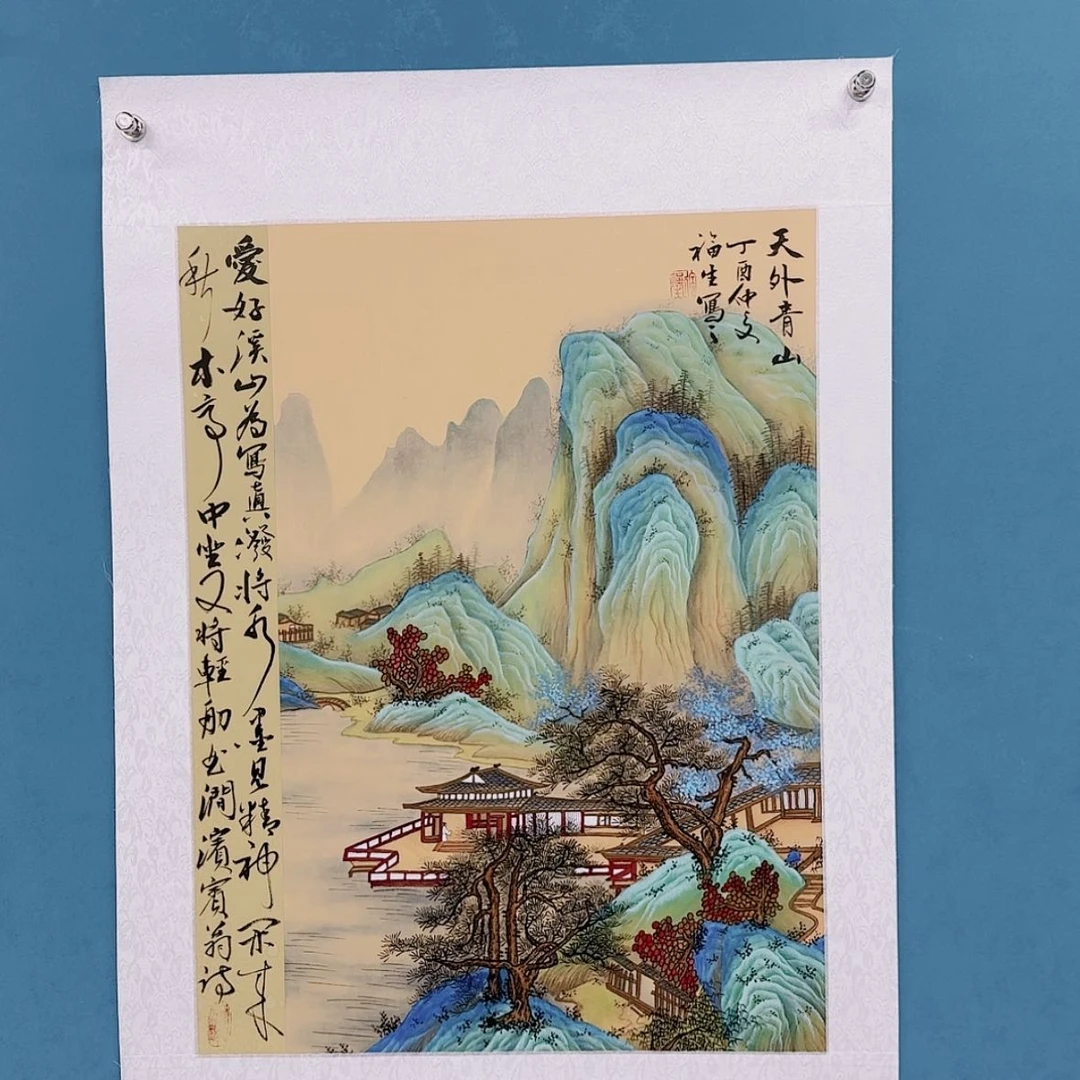 天外青山
丁酉仲夏
福生寫之
愛好溪山為寫真潑將水墨見精神閑來
秋木亭中坐又將輕舟出澗濱賓翁詩